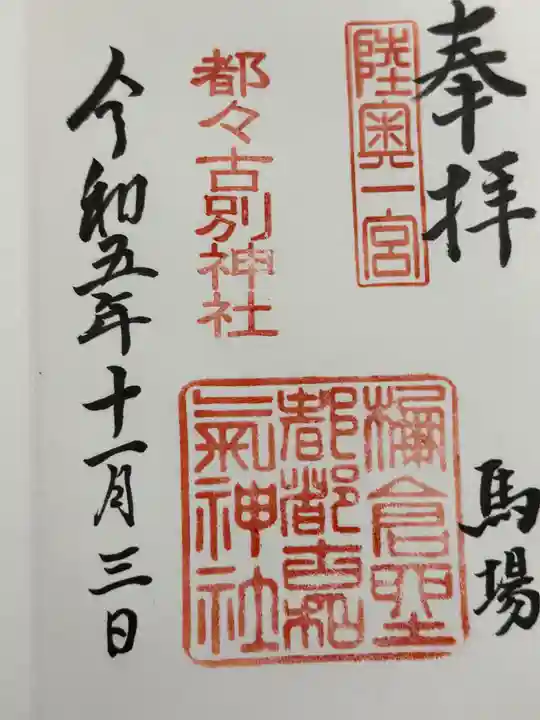 奉拝
馬場
陸奥一宮
都々古別神社
棚倉
都都古和
氣神社
令和五年十一月三日